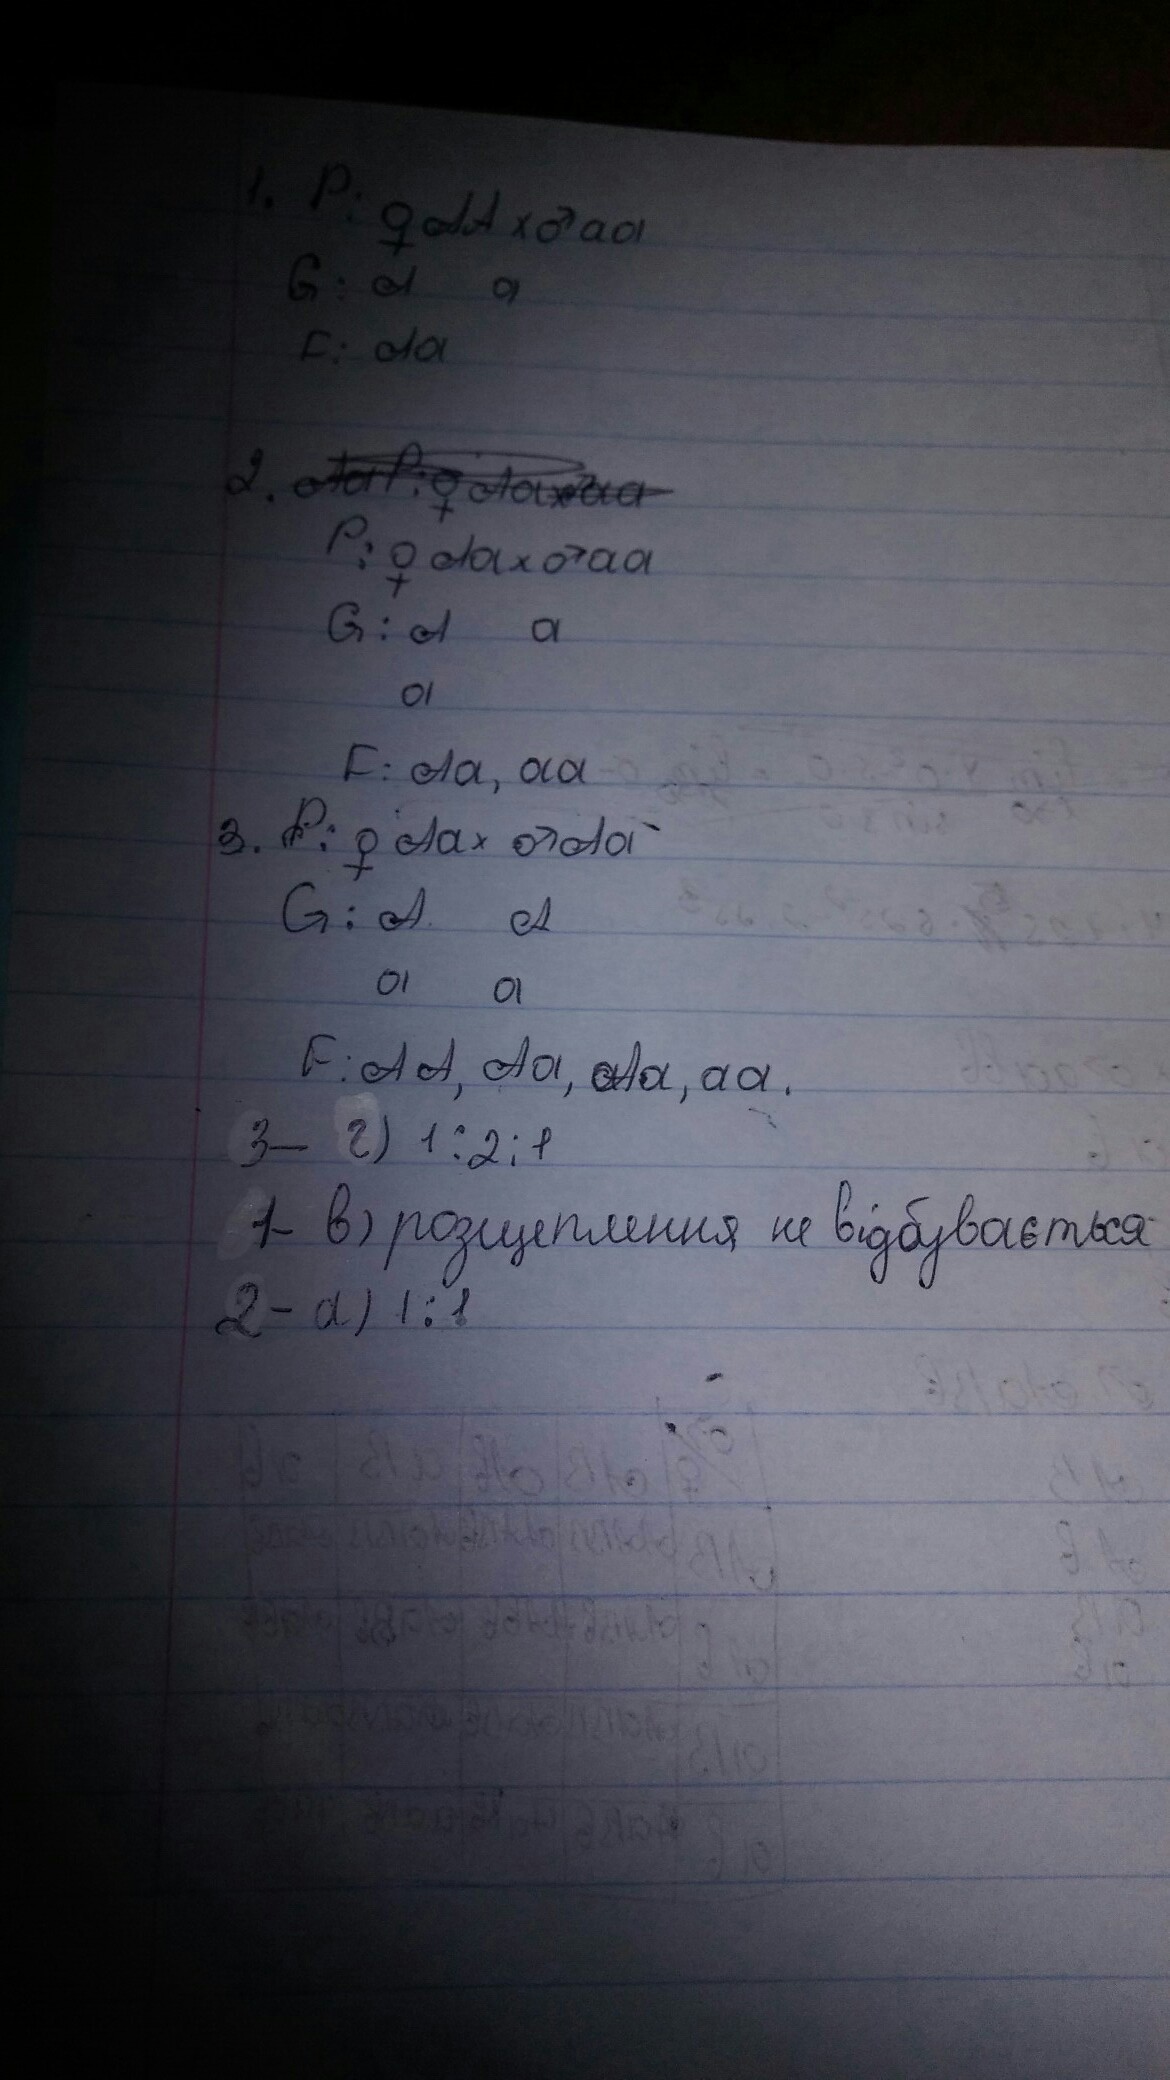 1. P: ♀AA x ♂aa
G: A a
F: Aa
2.
P: ♀Aa x ♂aa
G: A a
a
F: Aa, aa
3. P: ♀ Aa x ♂Aa
G: A A
a a
F: AA, Aa, Aa, aa.
3 – г) 1:2:1
1 – в) розщеплення не відбувається
2 – а) 1:1